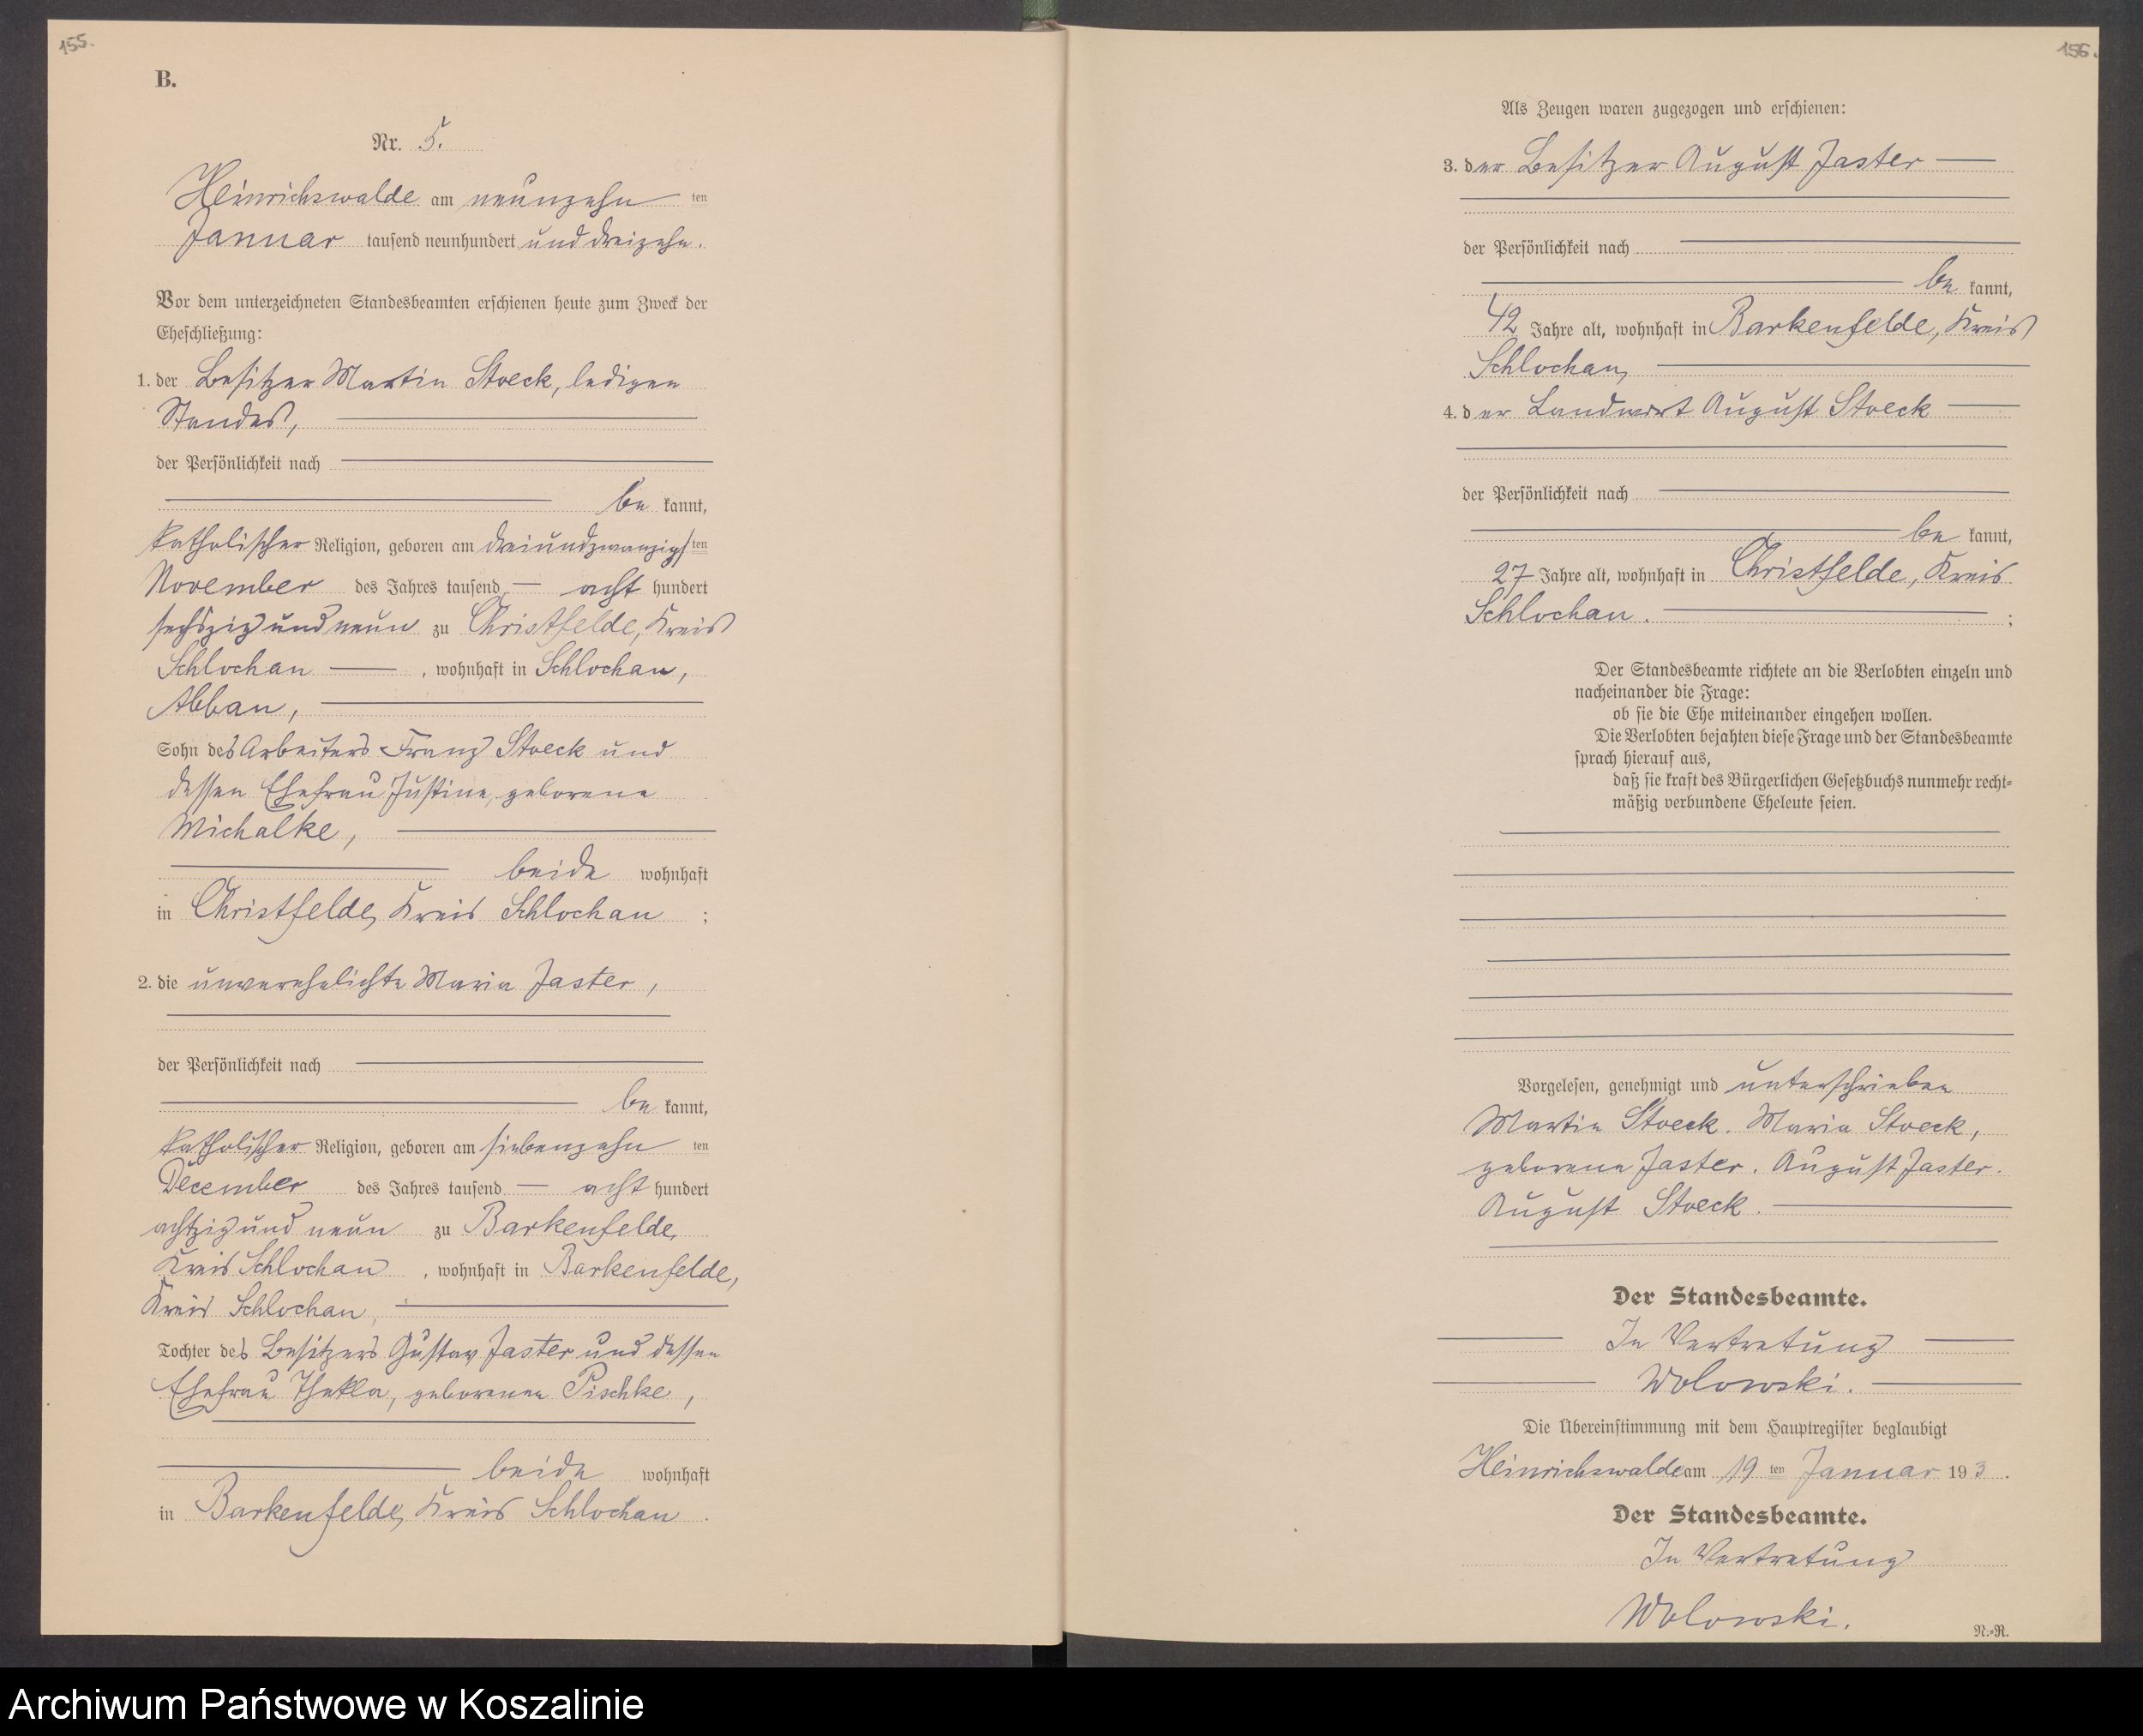 155.
B.
Nr. 5.
Heinrichswalde am neunzehn ten
Januar tausend neunhundert und dreizehn.
Vor dem unterzeichneten Standesbeamten erschienen heute zum Zweck der
Eheschließung:
1. der Besitzer Martin Stoeck, ledigen
Standes,
der Persönlichkeit nach
be kannt,
katholischer Religion, geboren am dreiundzwanzigsten
November des Jahres tausend — acht hundert
sechszig und neun zu Christfelde, Kreis
Schlochau —, wohnhaft in Schlochau,
Abbau,
Sohn des Arbeiters Franz Stoeck und
dessen Ehefrau Justine, geborene
Michalke,
beide wohnhaft
in Christfelde, Kreis Schlochau ;
2. die unverehelichte Maria Jaster,
der Persönlichkeit nach
be kannt,
katholischer Religion, geboren am siebenzehn ten
December des Jahres tausend — acht hundert
achtzig und neun zu Barkenfelde,
Kreis Schlochau, wohnhaft in Barkenfelde,
Kreis Schlochau,
Tochter des Besitzers Gustav Jaster und dessen
Ehefrau Thekla, geborenen Pischke,
beide wohnhaft
in Barkenfelde, Kreis Schlochau.
156.
Als Zeugen waren zugezogen und erschienen:
3. der Besitzer August Jaster —
der Persönlichkeit nach
be kannt,
42 Jahre alt, wohnhaft in Barkenfelde, Kreis
Schlochau,
4. der Landwirt August Stoeck —
der Persönlichkeit nach
be kannt,
27 Jahre alt, wohnhaft in Christfelde, Kreis
Schlochau. ;
Der Standesbeamte richtete an die Verlobten einzeln und
nacheinander die Frage:
ob sie die Ehe miteinander eingehen wollen.
Die Verlobten bejahten diese Frage und der Standesbeamte
sprach hierauf aus,
daß sie kraft des Bürgerlichen Gesetzbuchs nunmehr recht-
mäßig verbundene Eheleute seien.
Vorgelesen, genehmigt und unterschrieben
Martin Stoeck. Maria Stoeck,
geborene Jaster. August Jaster.
August Stoeck.
Der Standesbeamte.
In Vertretung
Wolowski.
Die Übereinstimmung mit dem Hauptregister beglaubigt
Heinrichswalde am 19 ten Januar 193.
Der Standesbeamte.
In Vertretung
Wolowski.
N.-R.
Archiwum Państwowe w Koszalinie